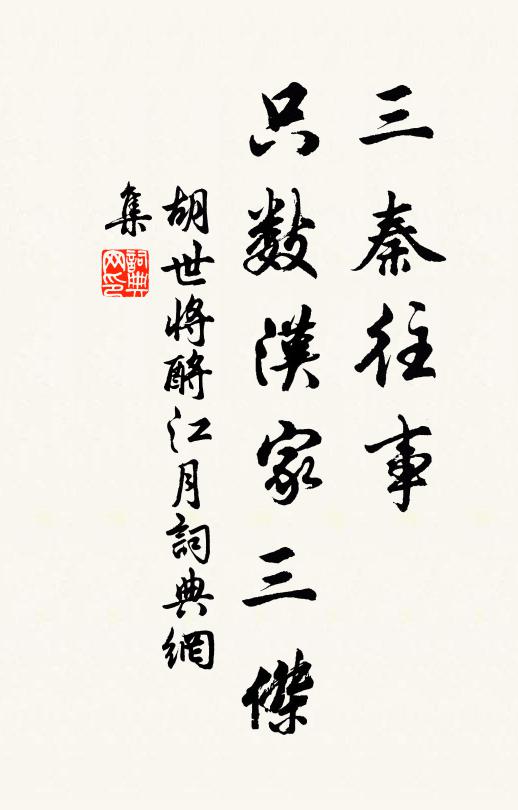 三秦往事
只数漢家三傑
胡世将酹江月詞典網
集
詞典
网印